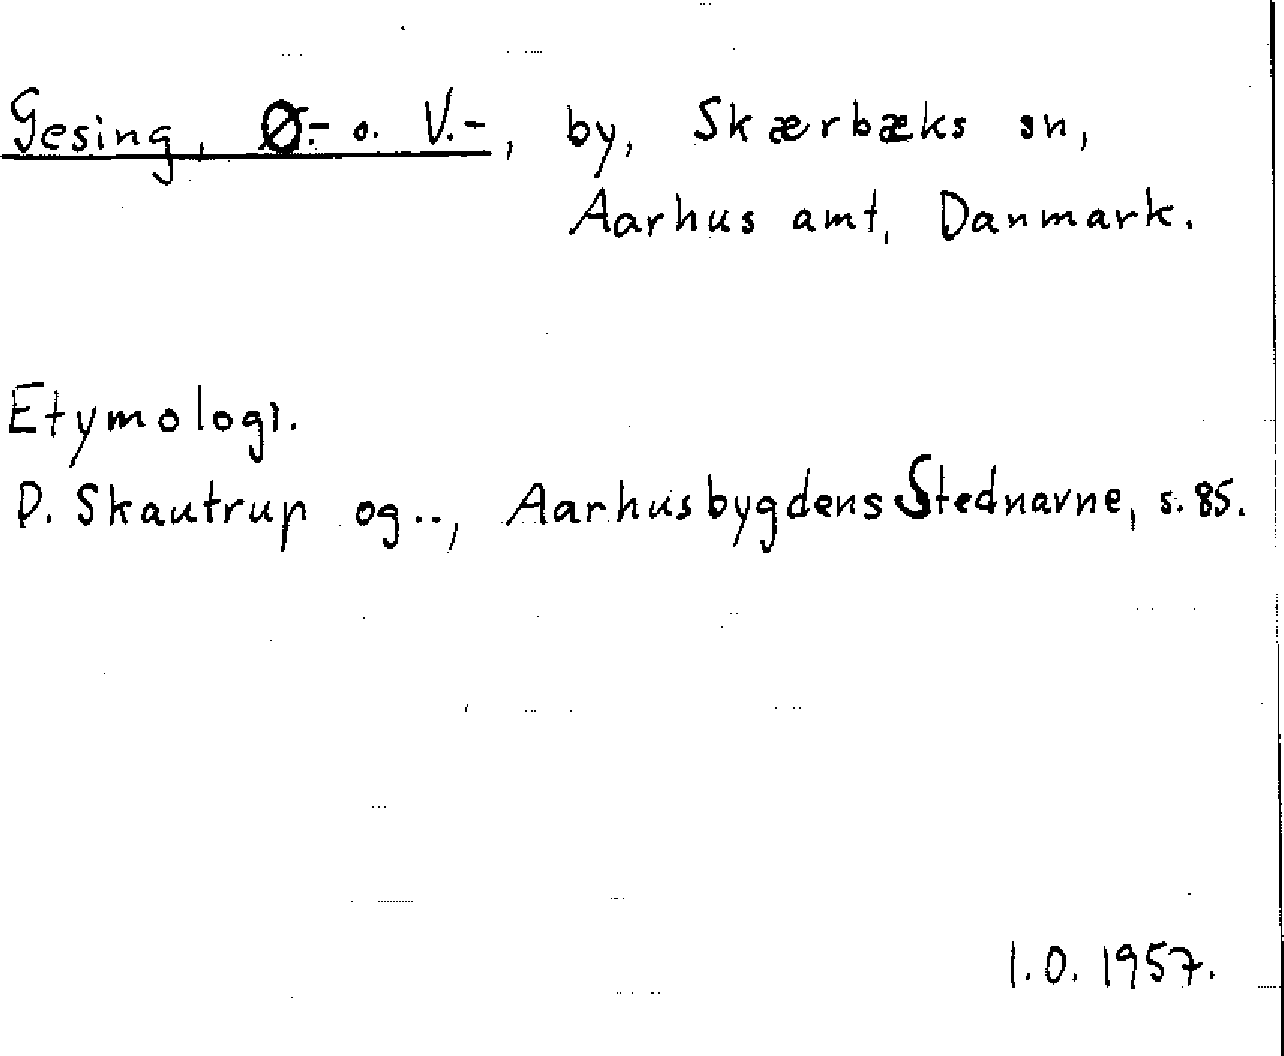 Gesing, Ø.- o. V.-, by, Skærbæks sn,
Aarhus amt, Danmark.
Etymologi.
P. Skautrup og.., Aarhusbygdens Stednavne, s. 85.
I.O. 1957.